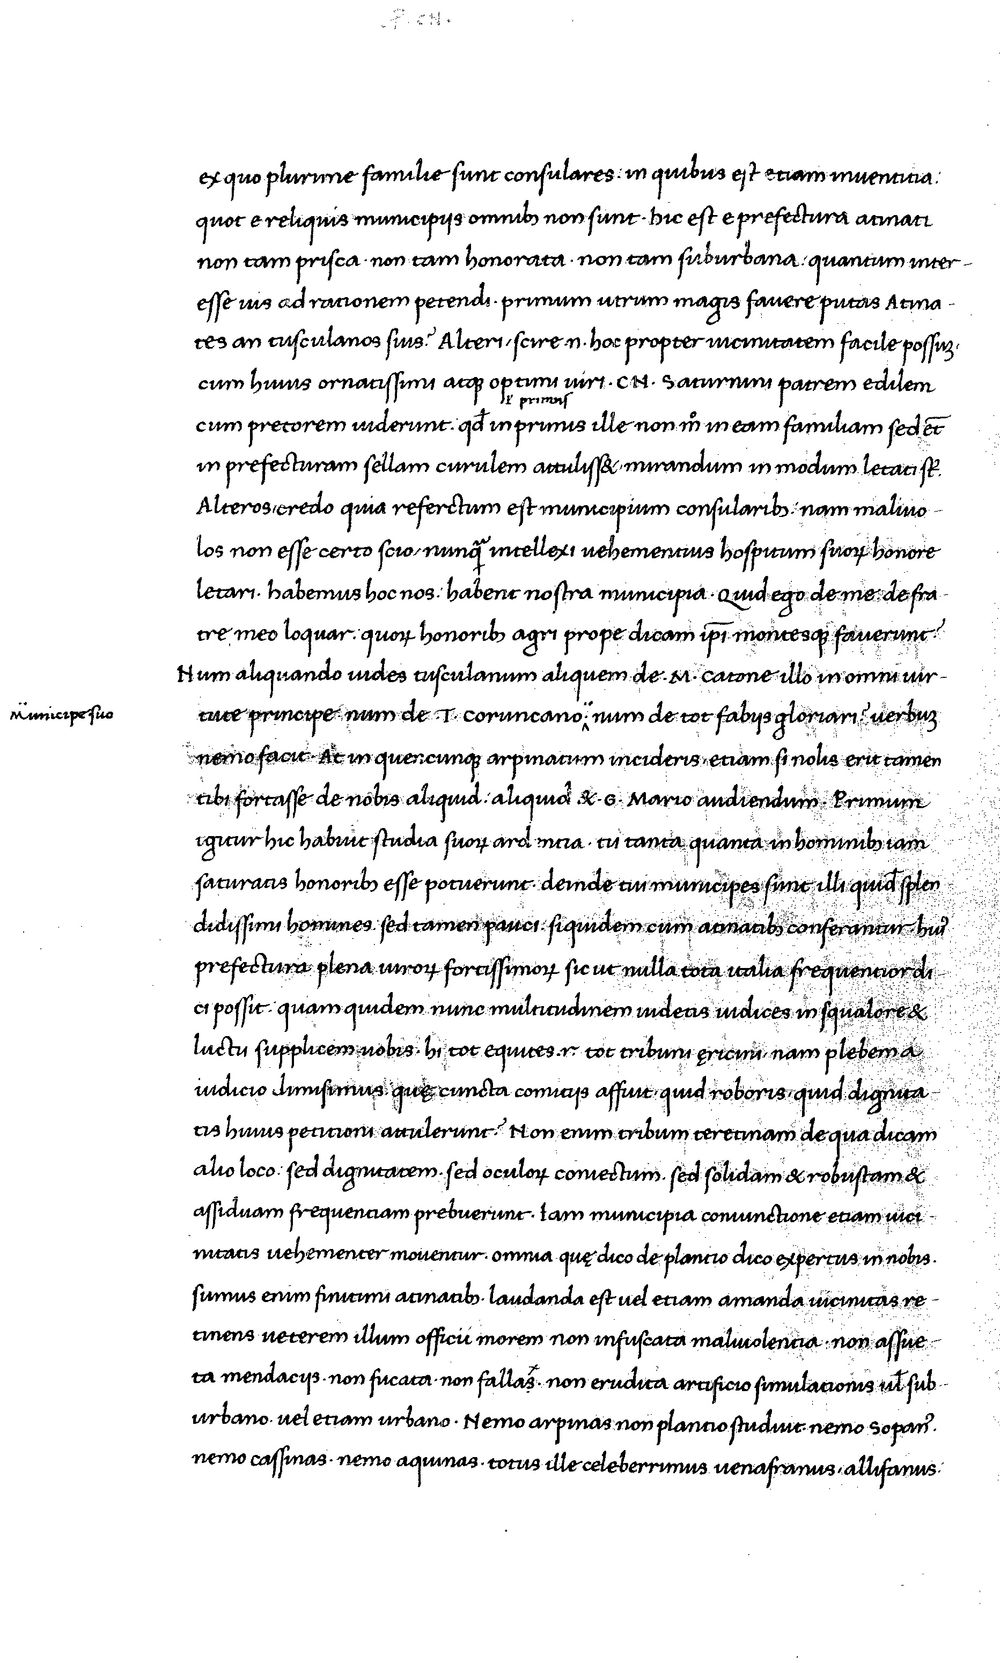 .P. CN.
ex quo plurime familie sunt consulares: in quibus est etiam inventitia:
quot e reliquis municipijs omnibꝫ non sunt · hic est e prefectura atinati
non tam prisca · non tam honorata · non tam suburbana: quantum inter-
esse uis ad rationem petendi · primum utrum magis fauere putas Atina-
tes an tusculanos suis? Alteri / scire .n. hoc propter uicinitatem facile possuꝫ.
cum huius ornatissimi atqꝫ optimi uiri · CN · Saturnini patrem edilem
ł primus
cum pretorem uiderunt · qđ in primis ille non m̊ in eam familiam sed et̄
in prefecturam sellam curulem attuliss& · mirandum in modum letati st̄.
Alteros / credo quia refertum est municipium consularibꝫ: nam maliuo-
los non esse certo scio / nunq̄ intellexi uehementius hospitum suoꝝ honore
letari · habemus hoc nos: habent nostra municipia · Quid ego de me: de fra
tre meo loquar: quoꝝ honoribꝫ agri prope dicam ip̄i montesqꝫ fauerunt?
Num aliquando uides tusculanum aliquem de · M · Catone illo in omni uir-
tute principe num de · T · coruncano: num de tot fabijs gloriari? uerbuꝫ
Municipe suo
nemo facit · At in quemcunqꝫ arpinatum incideris etiam si nolis erit tamen
tibi fortasse de nobis aliquid: aliquid & · G · Mario audiendum · Primum
igitur hic habuit studia suoꝝ ard ntia · tu tanta quanta in hominibꝫ iam
saturatis honoribꝫ esse potuerunt · deinde tui municipes sunt illi quiđ splen
didissimi homines sed tamen pauci: siquidem cum atinatibꝫ conferantur hui᾽
prefectura plena uiroꝝ fortissimoꝝ sic ut nulla tota italia frequentior di-
ci possit · quam quidem nunc multitudinem uidetis iudices in squalore &
luctu supplicem uobis · hi tot equites .r. tot tribuni ęricini nam plebem a
iudicio dimisimus quę cuncta comitijs affuit quid roboris / quid dignita-
tis huius petitioni attulerunt? Non enim tribum teretinam de qua dicam
alio loco: sed dignitatem · sed oculoꝝ coniectum · sed solidam & robustam &
assiduam frequentiam prebuerunt · Iam municipia coniunctione etiam uici-
nitatis uehementer mouentur · omnia quę dico de plantio dico expertus in nobis ·
sumus enim finitimi atinatibꝫ · laudanda est uel etiam amanda uicinitas re-
tinens ueterem illum officii morem non infuscata maliuolentia · non assue-
ta mendacijs · non fucata · non fallas · non erudita artificio simulationis uł sub
urbano · uel etiam urbano · Nemo arpinas non plantio studuit · nemo Sopan᾽ ·
nemo cassinas · nemo aquinas · totus ille celeberrimus uenafranus / allifanus: